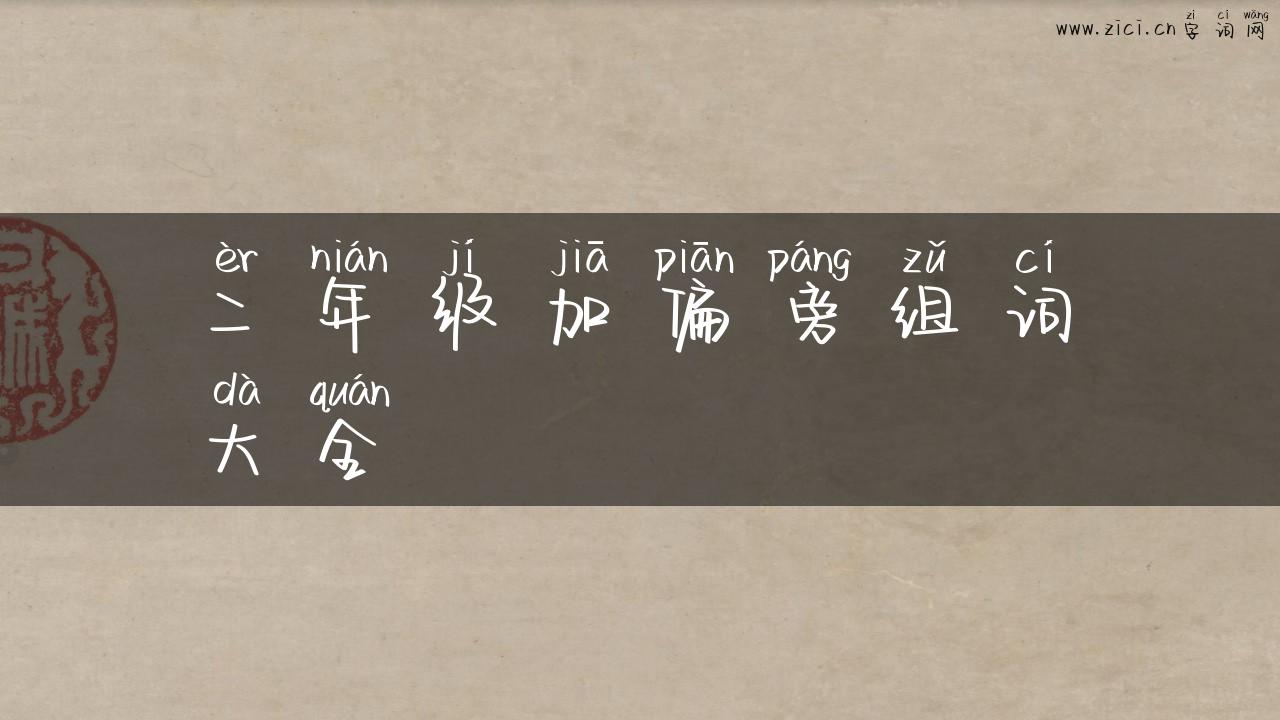 www.zici.cn 字词网
zì cí wǎng
èr nián jí jiā piān páng zǔ cí
二年级加偏旁组词
dà quán
大全